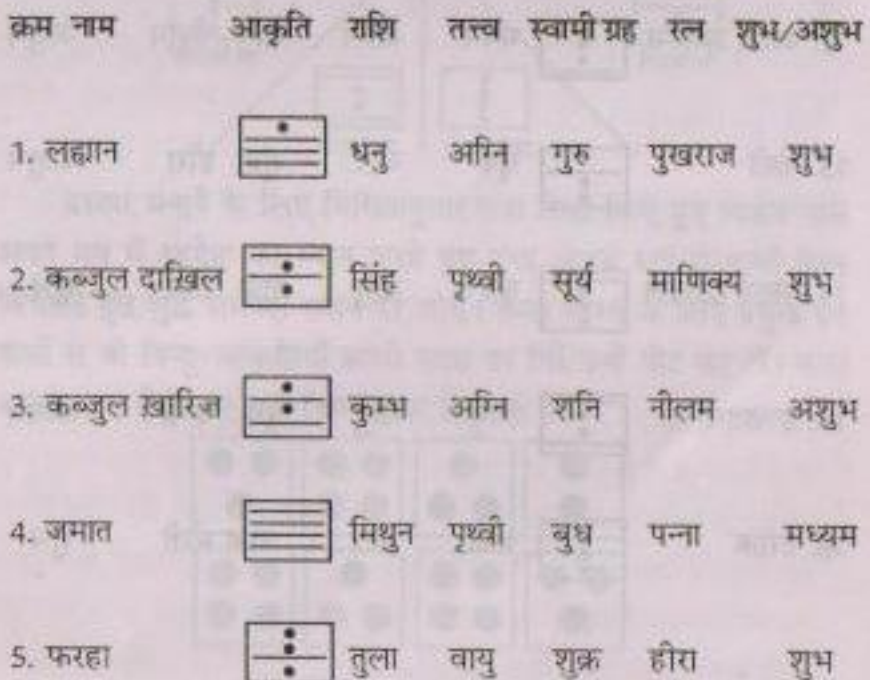 क्रम नाम आकृति राशि तत्त्व स्वामी ग्रह रत्न शुभ/अशुभ
1. लह्यान धनु अग्नि गुरु पुखराज शुभ
2. कब्जुल दाख़िल सिंह पृथ्वी सूर्य माणिक्य शुभ
3. कब्जुल ख़ारिज़ कुम्भ अग्नि शनि नीलम अशुभ
4. जमात मिथुन पृथ्वी बुध पन्ना मध्यम
5. फरहा तुला वायु शुक्र हीरा शुभ